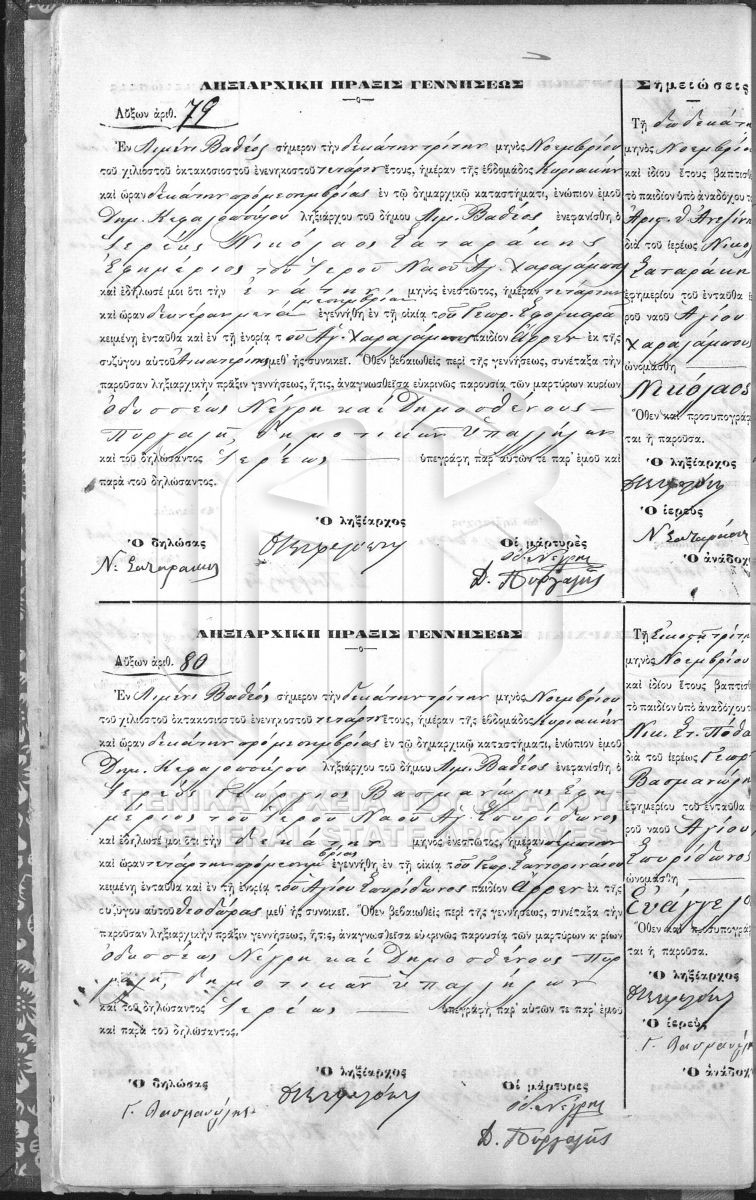 ΛΗΞΙΑΡΧΙΚΗ ΠΡΑΞΙΣ ΓΕΝΝΗΣΕΩΣ
Αὔξων ἀριθ. 79
Ἐν Λιμένι Βαθέος σήμερον τὴν δεκάτην τρίτην μηνὸς Νοεμβρίου
τοῦ χιλιοστοῦ ὀκτακοσιοστοῦ ἐνενηκοστοῦ τετάρτου ἔτους, ἡμέραν τῆς ἑβδομάδος Κυριακὴν
καὶ ὥραν δεκάτην πρὸ μεσημβρίας ἐν τῷ δημαρχικῷ καταστήματι, ἐνώπιον ἐμοῦ
Δημ. Κεφαλοπούλου ληξιάρχου τοῦ δήμου Λιμ. Βαθέος ἐνεφανίσθη ὁ
Ἱερεὺς Νικόλαος Σαταράκης
Ἐφημέριος τοῦ Ἱεροῦ Ναοῦ Ἁγ. Χαραλάμπους
καὶ ἐδήλωσέ μοι ὅτι τὴν ἐνάτην μηνὸς ἐνεστῶτος, ἡμέραν τετάρτην
καὶ ὥραν δευτέραν μετὰ μεσημβρίαν ἐγεννήθη ἐν τῇ οἰκίᾳ τοῦ Γεωρ.
κειμένῃ ἐνταῦθα καὶ ἐν τῇ ἐνορίᾳ τοῦ Ἁγ. Χαραλάμπους παιδίον ἄρρεν ἐκ τῆς
συζύγου αὐτοῦ Αἰκατερίνης μεθ' ἧς συνοικεῖ. Ὅθεν βεβαιωθεὶς περὶ τῆς γεννήσεως, συνέταξα τὴν
παροῦσαν ληξιαρχικὴν πρᾶξιν γεννήσεως, ἥτις, ἀναγνωσθεῖσα εὐκρινῶς παρουσίᾳ τῶν μαρτύρων κυρίων
Ὀδυσσέως Νέγρη καὶ Δημοσθένους
Πυργαλῆ, δημοτικῶν ὑπαλλήλων
καὶ τοῦ δηλώσαντος Ἱερέως ὑπεγράφη παρ' αὐτῶν τε παρ' ἐμοῦ καὶ
παρὰ τοῦ δηλώσαντος.
Ὁ δηλώσας
Ν. Σαταράκης
Ὁ ληξίαρχος
Οἱ μάρτυρες
Οδ. Νέγρης
Δ. Πυργαλῆς
Σημειώσεις
Τῇ δωδεκάτῃ
μηνὸς Νοεμβρίου
καὶ ἰδίου ἔτους βαπτισθ
τὸ παιδίον ὑπὸ ἀναδόχου τ
διὰ τοῦ ἱερέως Νικο
Σαταράκη
ἐφημερίου τοῦ ἐνταῦθα ἱε
ροῦ ναοῦ Ἁγίου
Χαραλάμπους
ὠνομάσθη
Νικόλαος
Ὅθεν καὶ προσυπογράφ
ται ἡ παροῦσα.
Ὁ ληξίαρχος
Ὁ ἱερεὺς
Ν. Σαταράκης
Ὁ ἀνάδοχ
ΛΗΞΙΑΡΧΙΚΗ ΠΡΑΞΙΣ ΓΕΝΝΗΣΕΩΣ
Αὔξων ἀριθ. 80
Ἐν Λιμένι Βαθέος σήμερον τὴν δεκάτην τρίτην μηνὸς Νοεμβρίου
τοῦ χιλιοστοῦ ὀκτακοσιοστοῦ ἐνενηκοστοῦ τετάρτου ἔτους, ἡμέραν τῆς ἑβδομάδος Κυριακὴν
καὶ ὥραν δεκάτην πρὸ μεσημβρίας ἐν τῷ δημαρχικῷ καταστήματι, ἐνώπιον ἐμοῦ
Δημ. Κεφαλοπούλου ληξιάρχου τοῦ δήμου Λιμ. Βαθέος ἐνεφανίσθη ὁ
Ἱερεὺς Γεώργιος Βασμανώλης Ἐφη
μέριος τοῦ Ἱεροῦ Ναοῦ Ἁγ. Σπυρίδωνος
ΓΕΝΙΚΑ ΑΡΧΕΙΑ ΤΟΥ ΚΡΑΤΟΥΣ
GENERAL STATE ARCHIVES
καὶ ἐδήλωσέ μοι ὅτι τὴν δεκάτην μηνὸς ἐνεστῶτος, ἡμέραν πέμπτην
καὶ ὥραν τετάρτην πρὸ μεσημβρίας ἐγεννήθη ἐν τῇ οἰκίᾳ τοῦ Γεωρ. Σαντοριναίου
κειμένῃ ἐνταῦθα καὶ ἐν τῇ ἐνορίᾳ τοῦ Ἁγίου Σπυρίδωνος παιδίον ἄρρεν ἐκ τῆς
συζύγου αὐτοῦ Θεοδώρας μεθ' ἧς συνοικεῖ. Ὅθεν βεβαιωθεὶς περὶ τῆς γεννήσεως, συνέταξα τὴν
παροῦσαν ληξιαρχικὴν πρᾶξιν γεννήσεως, ἥτις, ἀναγνωσθεῖσα εὐκρινῶς παρουσίᾳ τῶν μαρτύρων κυρίων
Ὀδυσσέως Νέγρη καὶ Δημοσθένους Πυρ
γαλῆ, δημοτικῶν ὑπαλλήλων
καὶ τοῦ δηλώσαντος Ἱερέως ὑπεγράφη παρ' αὐτῶν τε παρ' ἐμοῦ
καὶ παρὰ τοῦ δηλώσαντος.
Ὁ δηλώσας
Γ. Βασμανώλης
Ὁ ληξίαρχος
Οἱ μάρτυρες
Οδ. Νέγρης
Δ. Πυργαλῆς
Τῇ Εἰκοστῇ τρίτῃ
μηνὸς Νοεμβρίου
καὶ ἰδίου ἔτους βαπτισθ
τὸ παιδίον ὑπὸ ἀναδόχου τ
Νικ. Στ.
διὰ τοῦ ἱερέως Γεωρ
Βασμανώλη
ἐφημερίου τοῦ ἐνταῦθα
ροῦ ναοῦ Ἁγίου
Σπυρίδωνος
ὠνομάσθη
Εὐάγγελο
Ὅθεν καὶ προσυπογρά
ται ἡ παροῦσα.
Ὁ ληξίαρχος
Ὁ ἱερεὺς
Γ. Βασμανώλης
Ὁ ἀνάδοχ